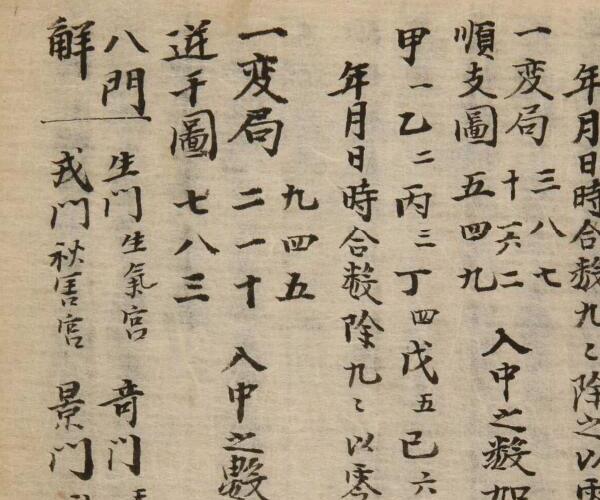 年月日時合数九〻除之以零
一変局 三八七
十一六二
順支圖 五四九
入中之数如
甲一乙二丙三丁四戊五己六
年月日時合数除九〻以零
一変局 九四五
二一十
逆干圖 七八三
入中之數
八門 生門 生氣宮 奇門
解 戎門 秋害宮 景門